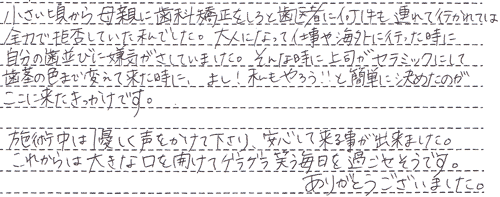 小さい頃から母親に歯科矯正をしろと歯医者に何件も連れて行かれては
全力で拒否していた私でした。大人になって仕事や海外に行った時に
自分の歯並びに嫌気がさしていました。そんな時に上司がセラミックにして
歯茎の色まで変えて来た時に、よし!私もやろう!!と簡単に決めたのが
ここに来たきっかけです。
施術中は優しく声をかけて下さり、安心して来る事が出来ました。
これからは大きな口を開けてゲラゲラ笑う毎日を過ごせそうです。
ありがとうございました。